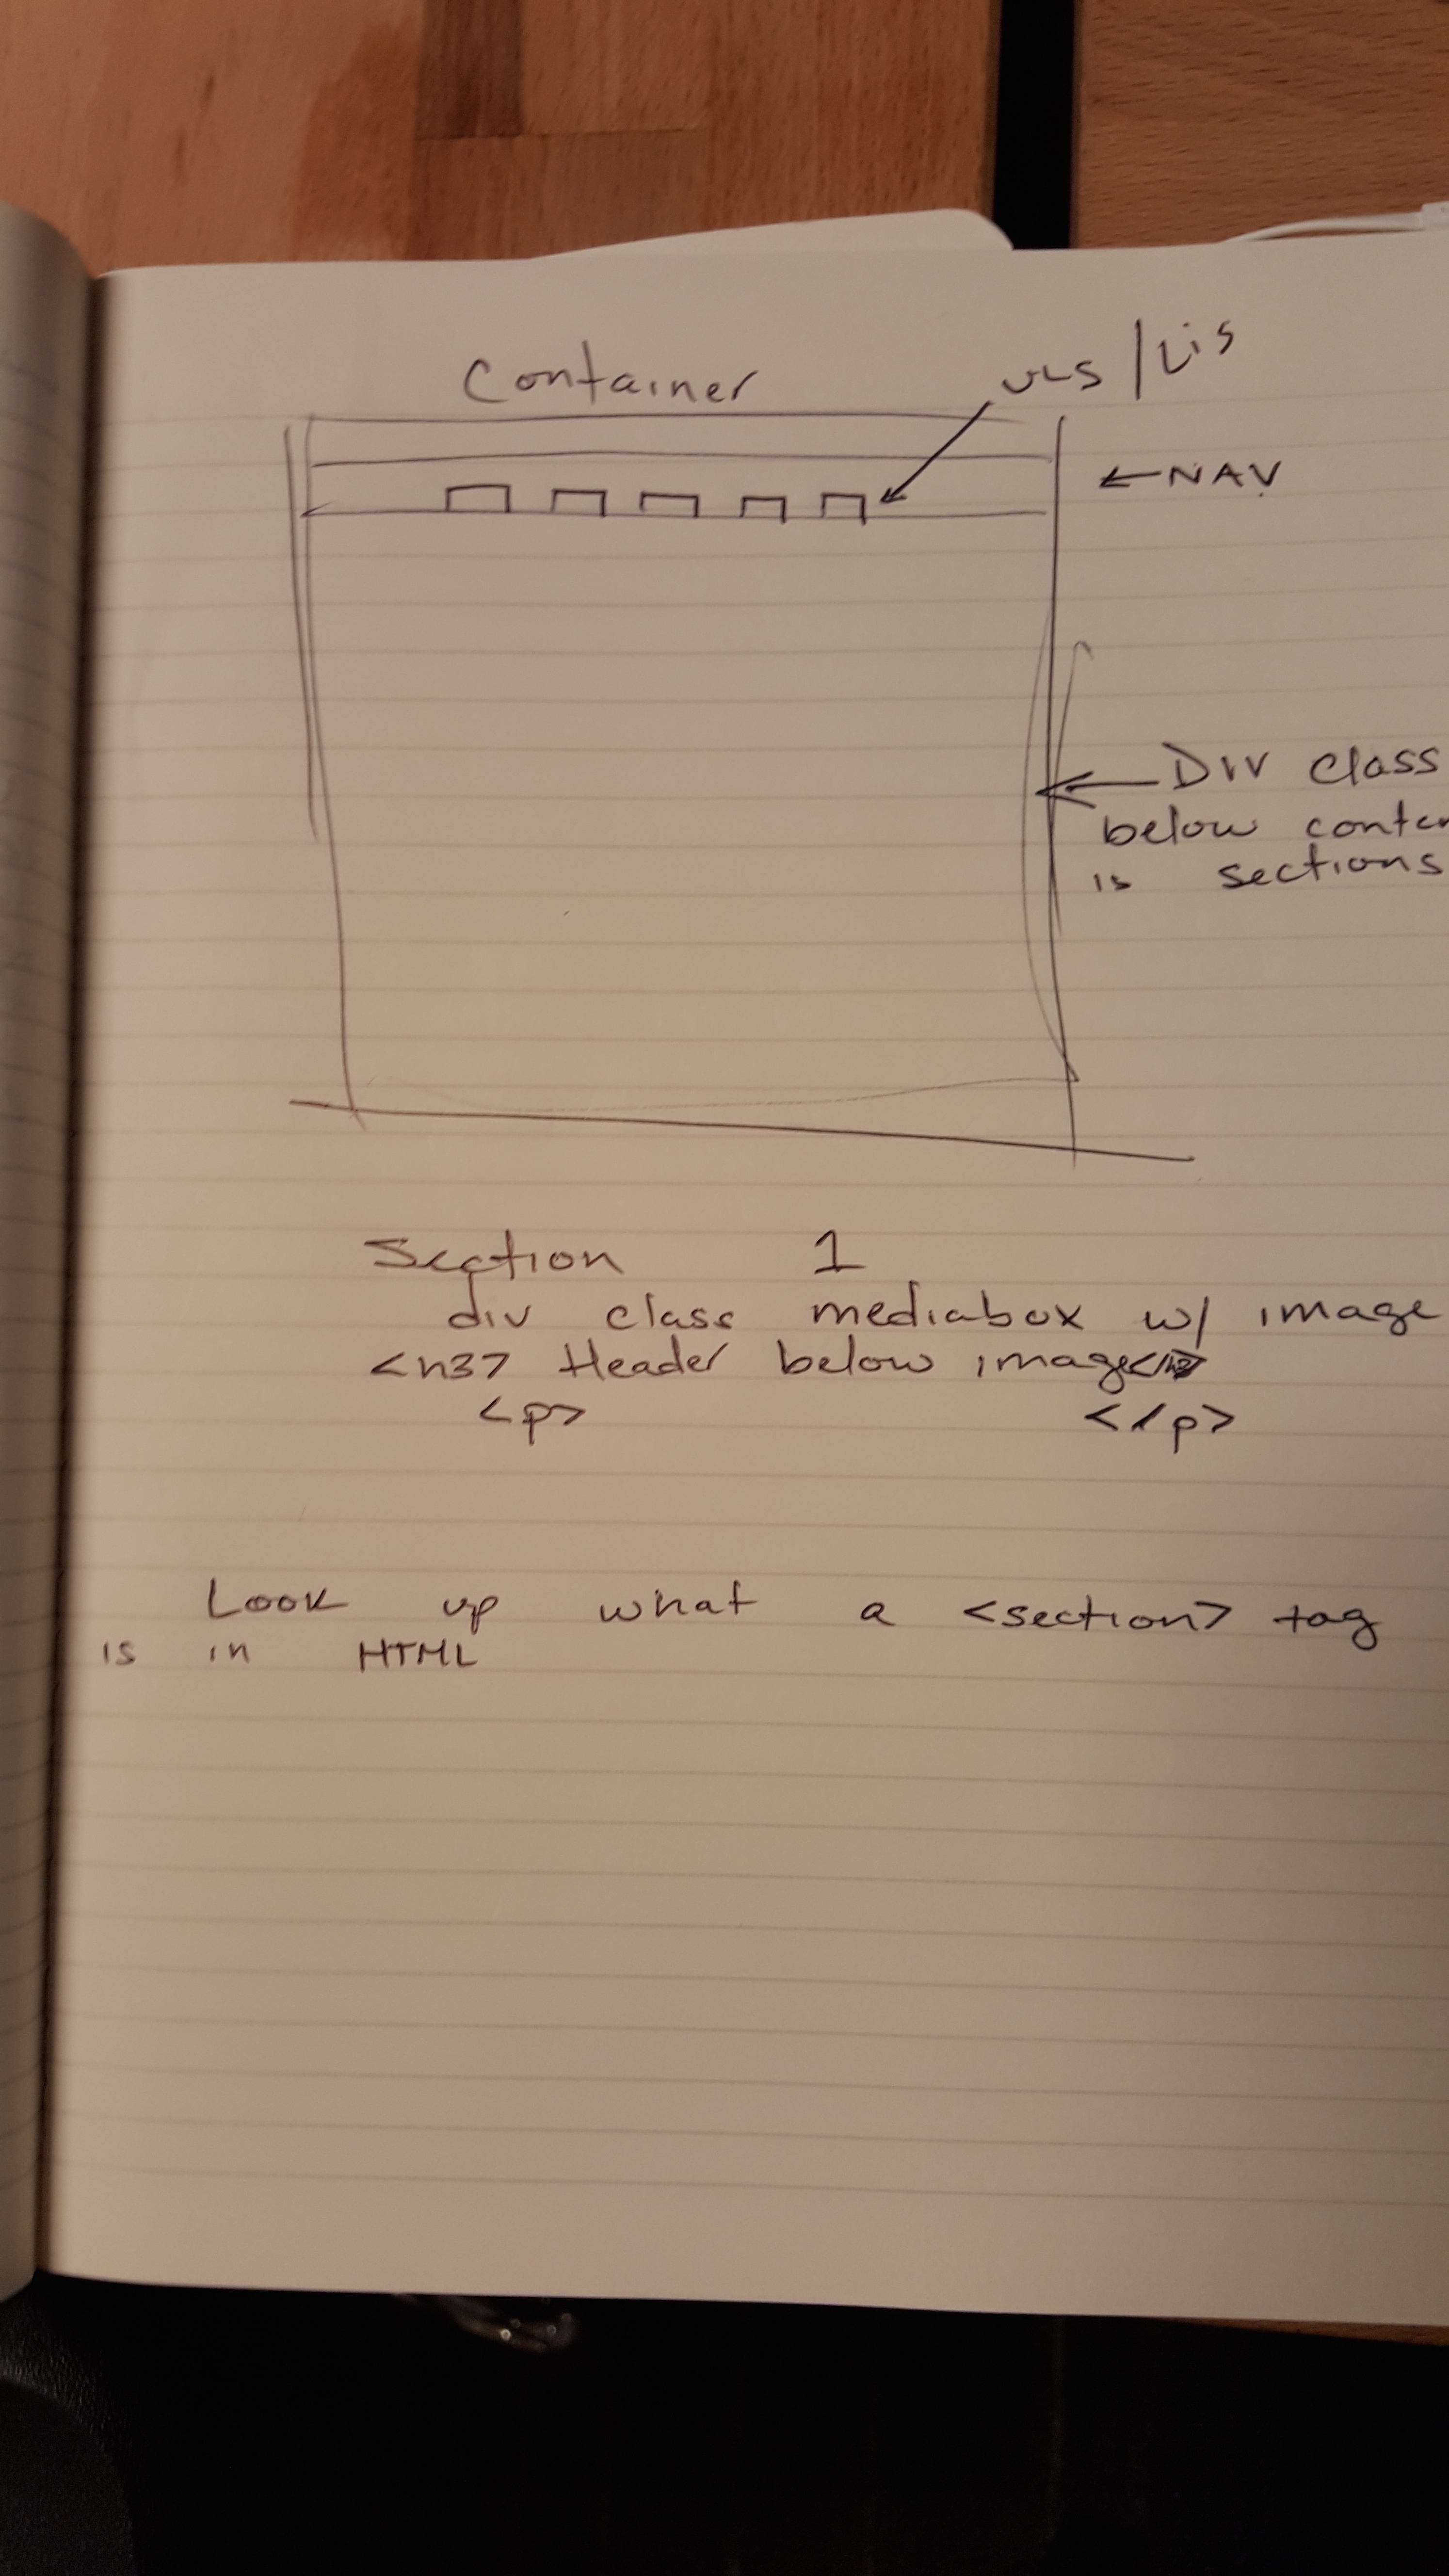 Container
ULS/Lis
←NAV
←Div class
below
is sections
Section 1
div class mediabox w/ image
<h3> Header below image</h3>
<p> </p>
Look up what a <section> tag
is in HTML